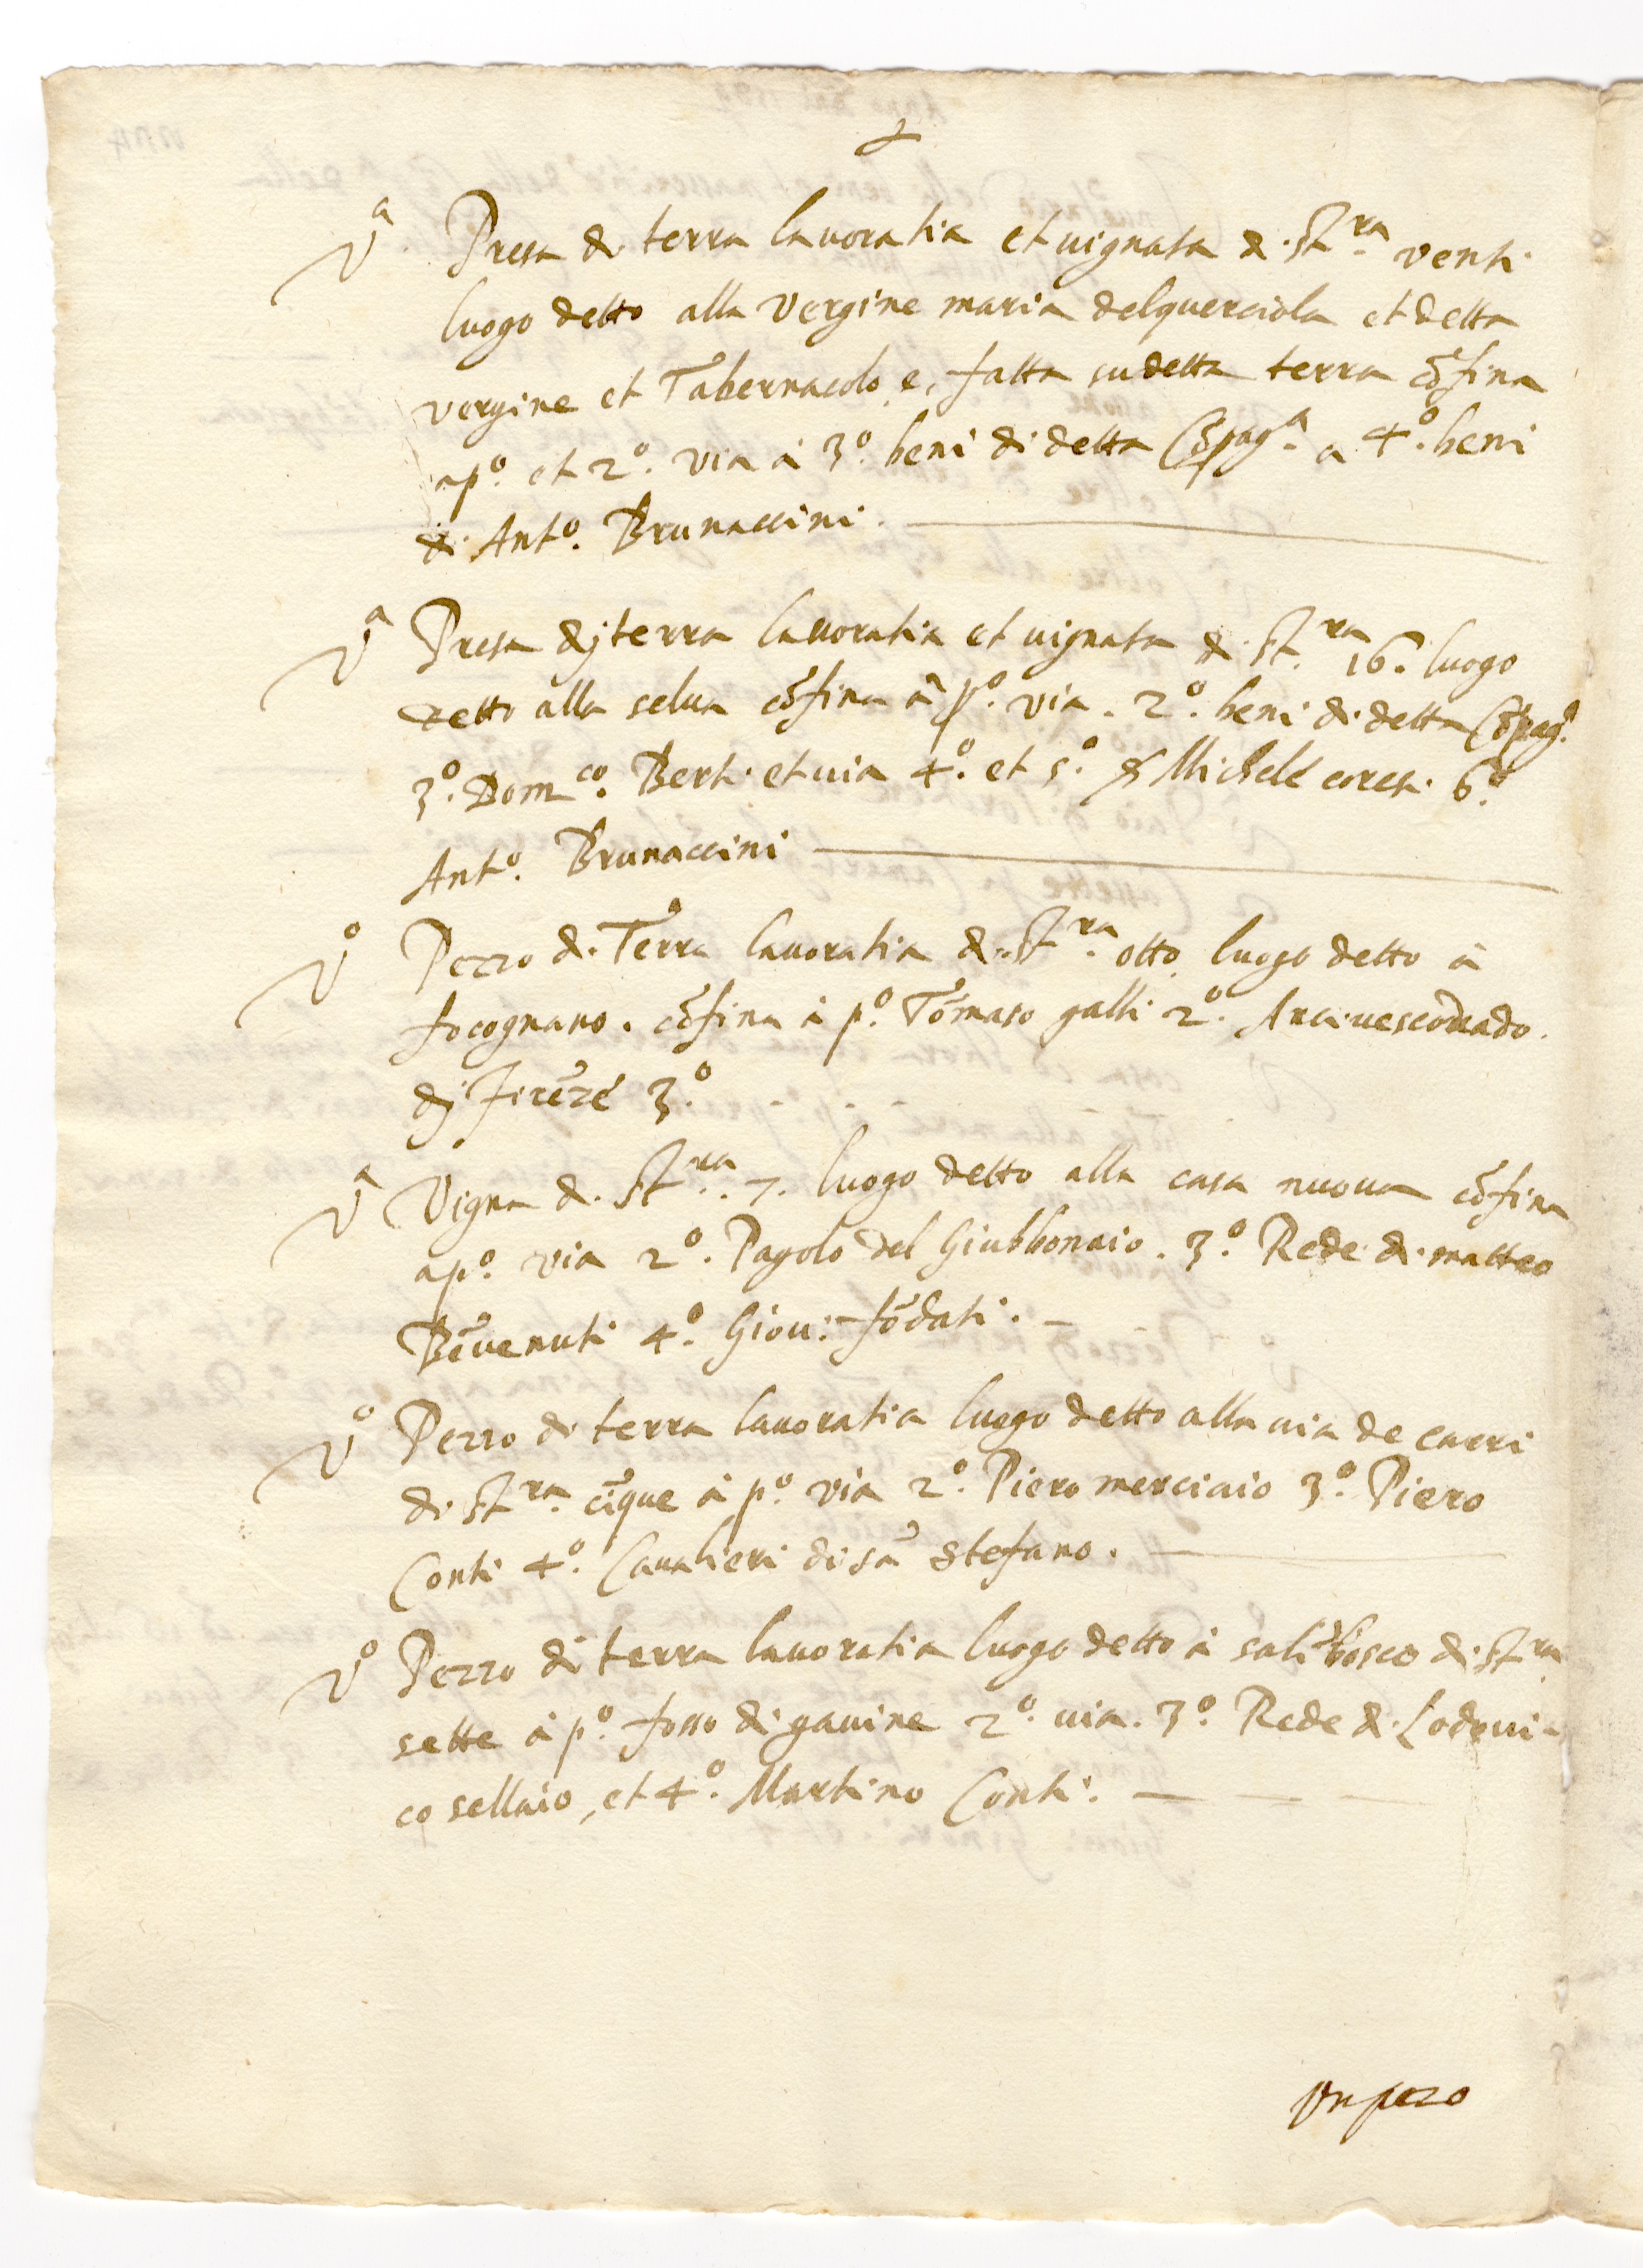 Vᵃ Presa di terra lavoratia et vignata di stʳᵃ. venti
luogo detto alla Vergine maria delquerciola et detta
vergine et Tabernacolo e, fatta sudetta terra cōfina
apº. et 2º. via à 3º. beni di detta Cōpagᵃ. a 4º. beni
di Antº. Brunaccini.
Vᵃ Presa dj terra lavoratia et vignata di st.ʳᵃ 16. luogo
detto alla selva cōfina à pº. via. 2º. beni di detta Cōpagᵃ.
3º. Domᶜᵒ. Berti et via 4º. et 5º. Michele 6º.
Antº. Brunaccini
Vº Pezzo di Terra lavoratia di stʳᵃ. otto luogo detto à
focognano. cōfina à pº. Tōmaso galli 2º. Arcivescovado.
dj Firēze 3º. - - - -
Vᵃ Vigna di stʳᵃ. 7. luogo detto alla casa nuova cōfina
apº. via 2º. Pagolo del Giubbonaio. 3º. Rede di matteo
Bēvenuti 4º. Giov: fōdati. -
Vº Pezzo di terra lavoratia luogo detto alla via de carri
di stʳᵃ. cīque à pº. via 2º. Piero merciaio 3º. Piero
Conti 4º. Cavalieri di sā Stefano.
Vº Pezzo di terra lavoratia luogo detto à salībosco di stʳᵃ.
sette à pº. fosso di gavine 2º. via. 3º. Rede di Lodovi-
co sellaio, et 4º. Martino Conti. - - -
Vn pezo